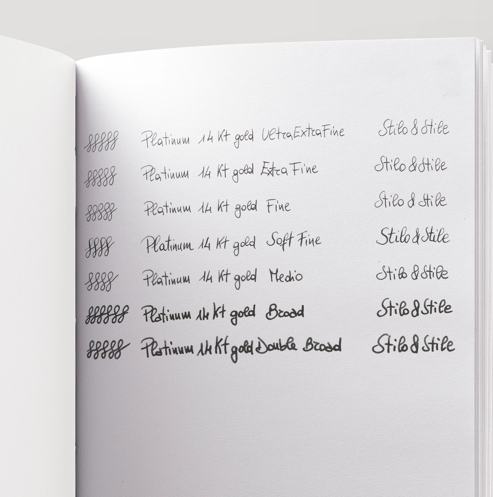 Platinum 14 Kt gold UltraExtraFine Stilo & Stile
Platinum 14 Kt gold Extra Fine Stilo & Stile
Platinum 14 Kt gold Fine Stilo & Stile
Platinum 14 Kt gold Soft Fine Stilo & Stile
Platinum 14 Kt gold Medio Stilo & Stile
Platinum 14 Kt gold Broad Stilo & Stile
Platinum 14 Kt gold Double Broad Stilo & Stile